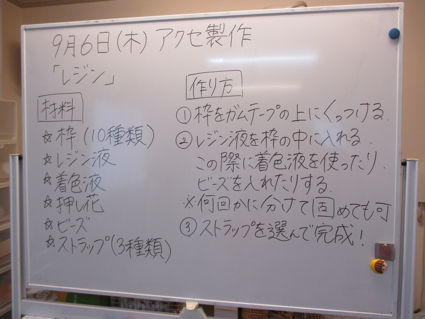 9月6日(木) アクセ製作
「レジン」
材料
☆枠(10種類)
☆レジン液
☆着色液
☆押し花
☆ビーズ
☆ストラップ(3種類)
作り方
①枠をガムテープの上にくっつける.
②レジン液を枠の中に入れる.
この際に着色液を使ったり
ビーズを入れたりする.
※何回かに分けて固めても可
③ストラップを選んで完成!